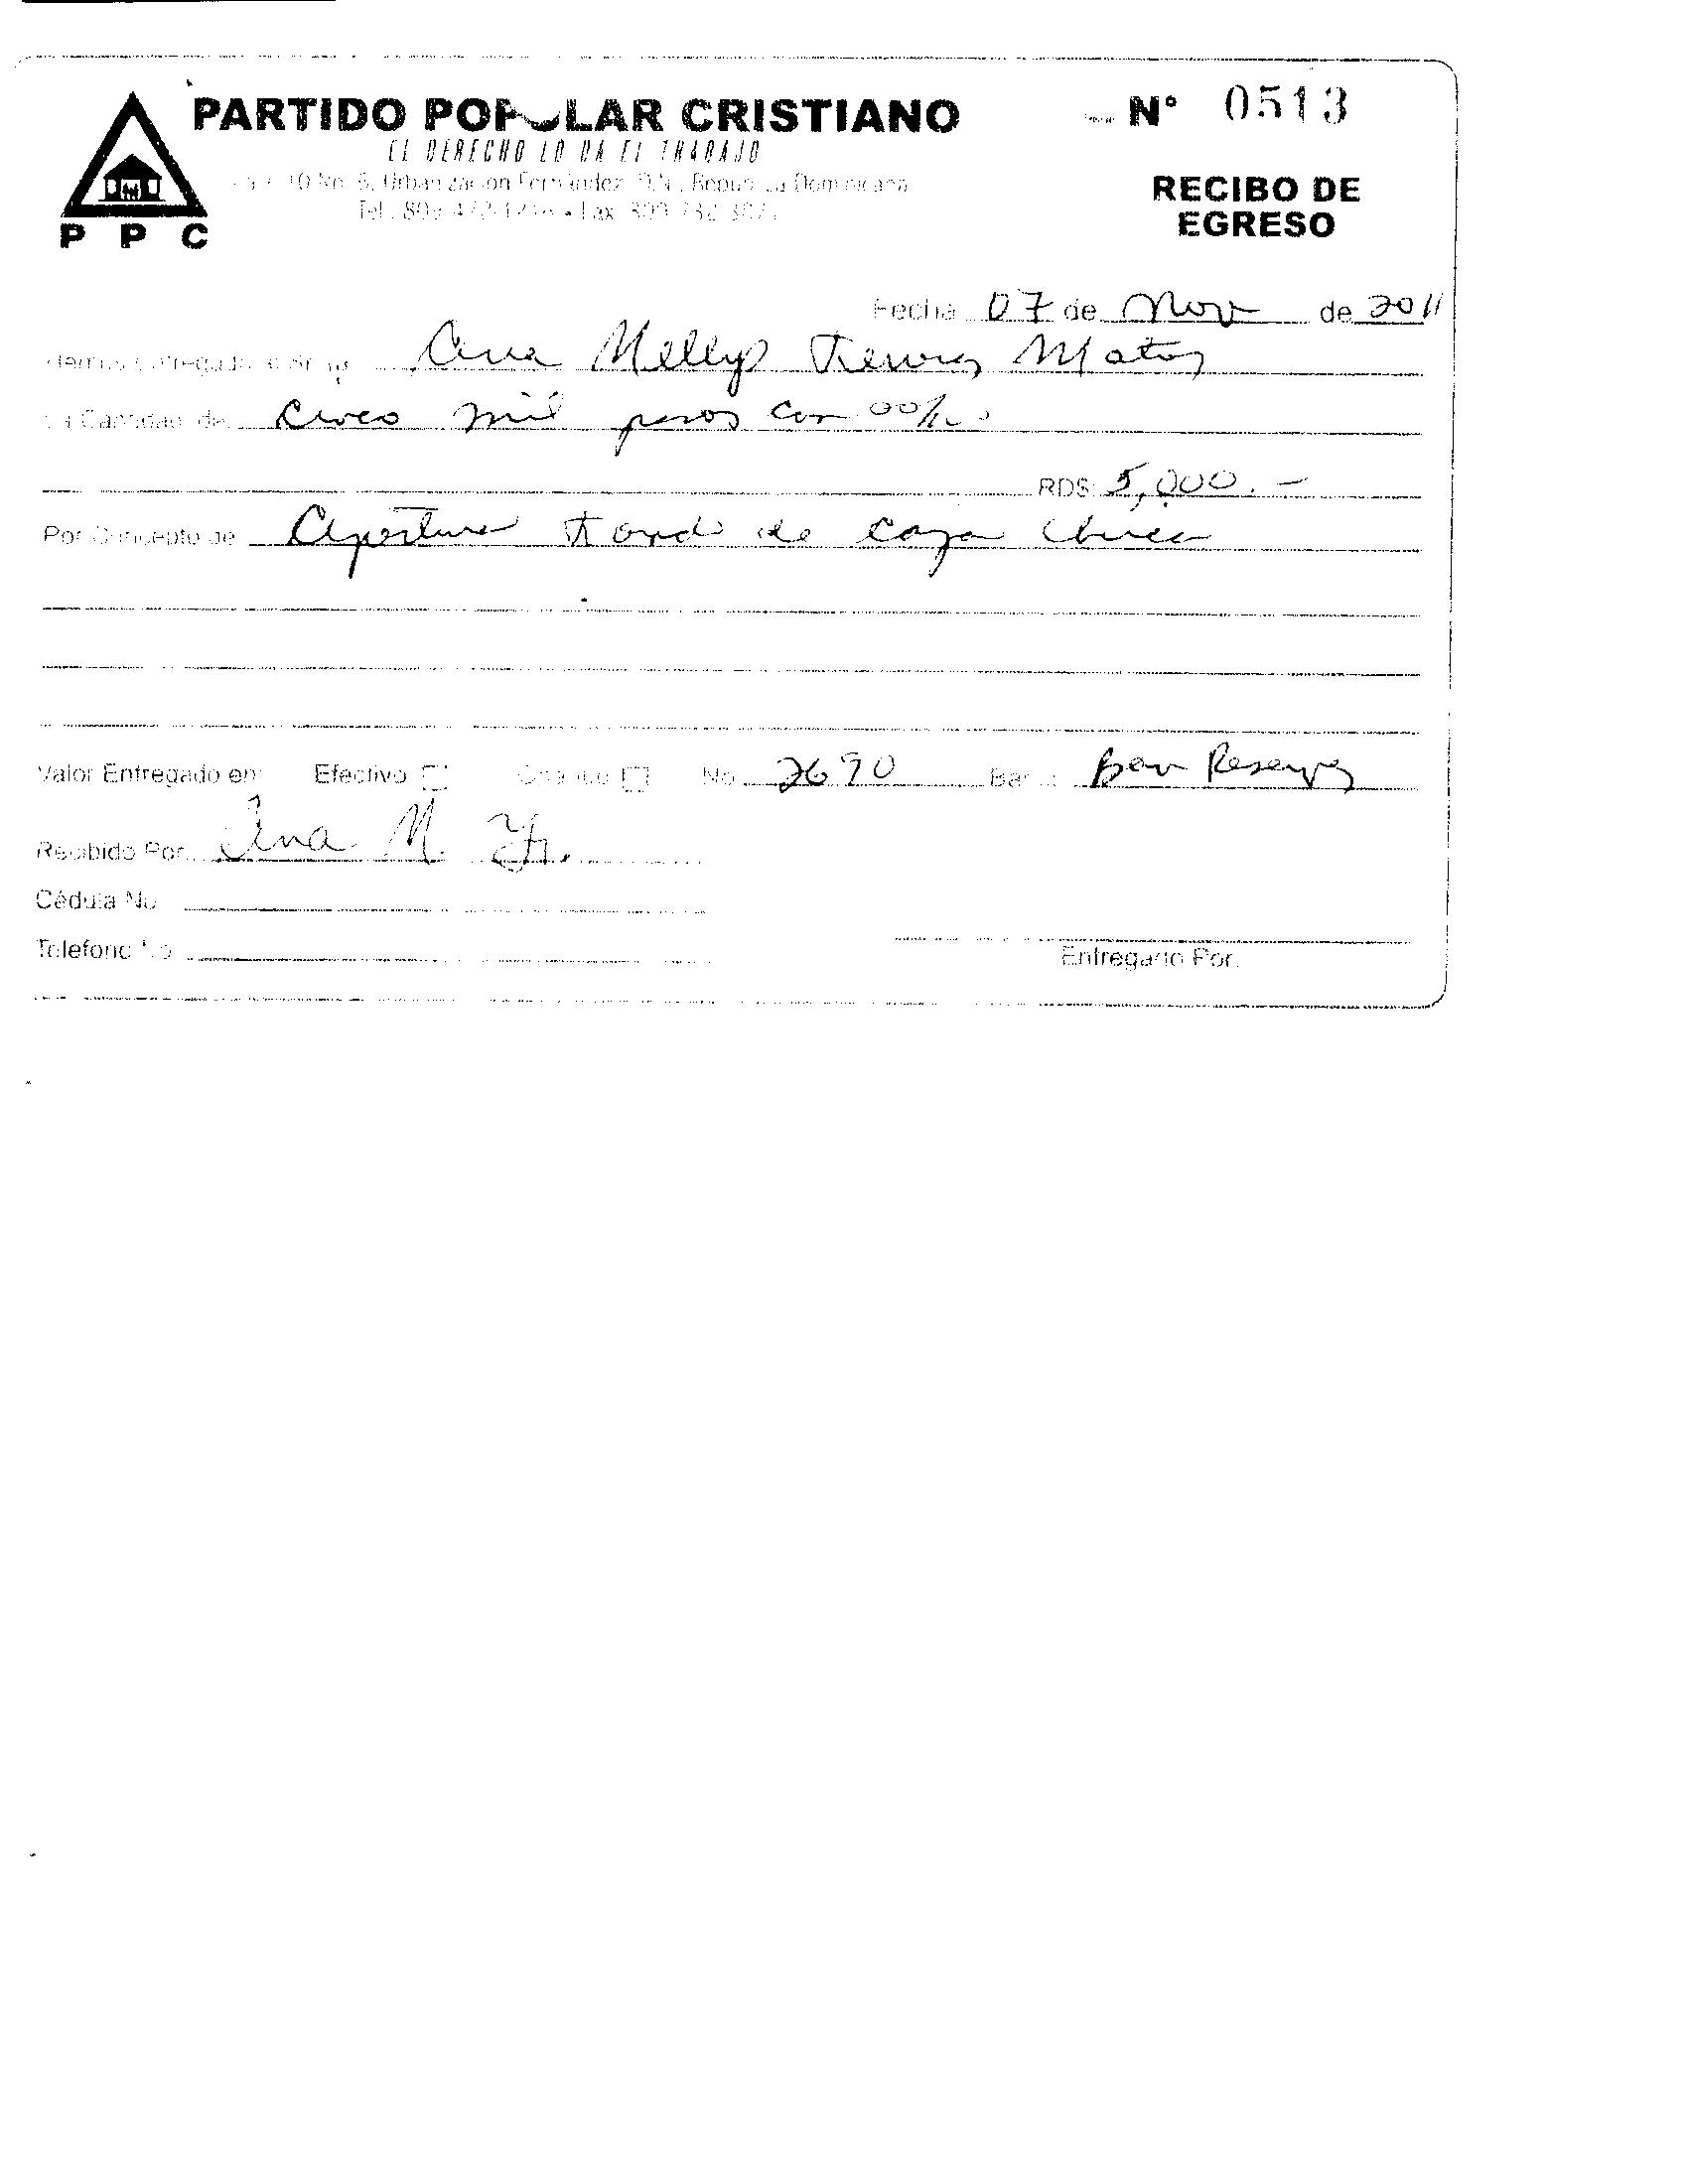 PARTIDO POPULAR CRISTIANO
EL DERECHO LO DA EL TRABAJO
10 No. 5, Urbanización Fernández, D.N., República Dominicana
Tel.: 809 Fax 809
P P C
N° 0513
RECIBO DE
EGRESO
Fecha 07 de Nov de 2011
Hemos entregado a Sr. Ana Mellys Matos
La Cantidad de Cinco mil pesos con 00/100
RD$ 5,000.-
Por Concepto de Apertura Fondo de Caja Chica
Valor Entregado en: Efectivo Cheque No. 2690 Banco Ban Reservas
Recibido Por Ana M.
Cédula No
Telefono No
Entregado Por: